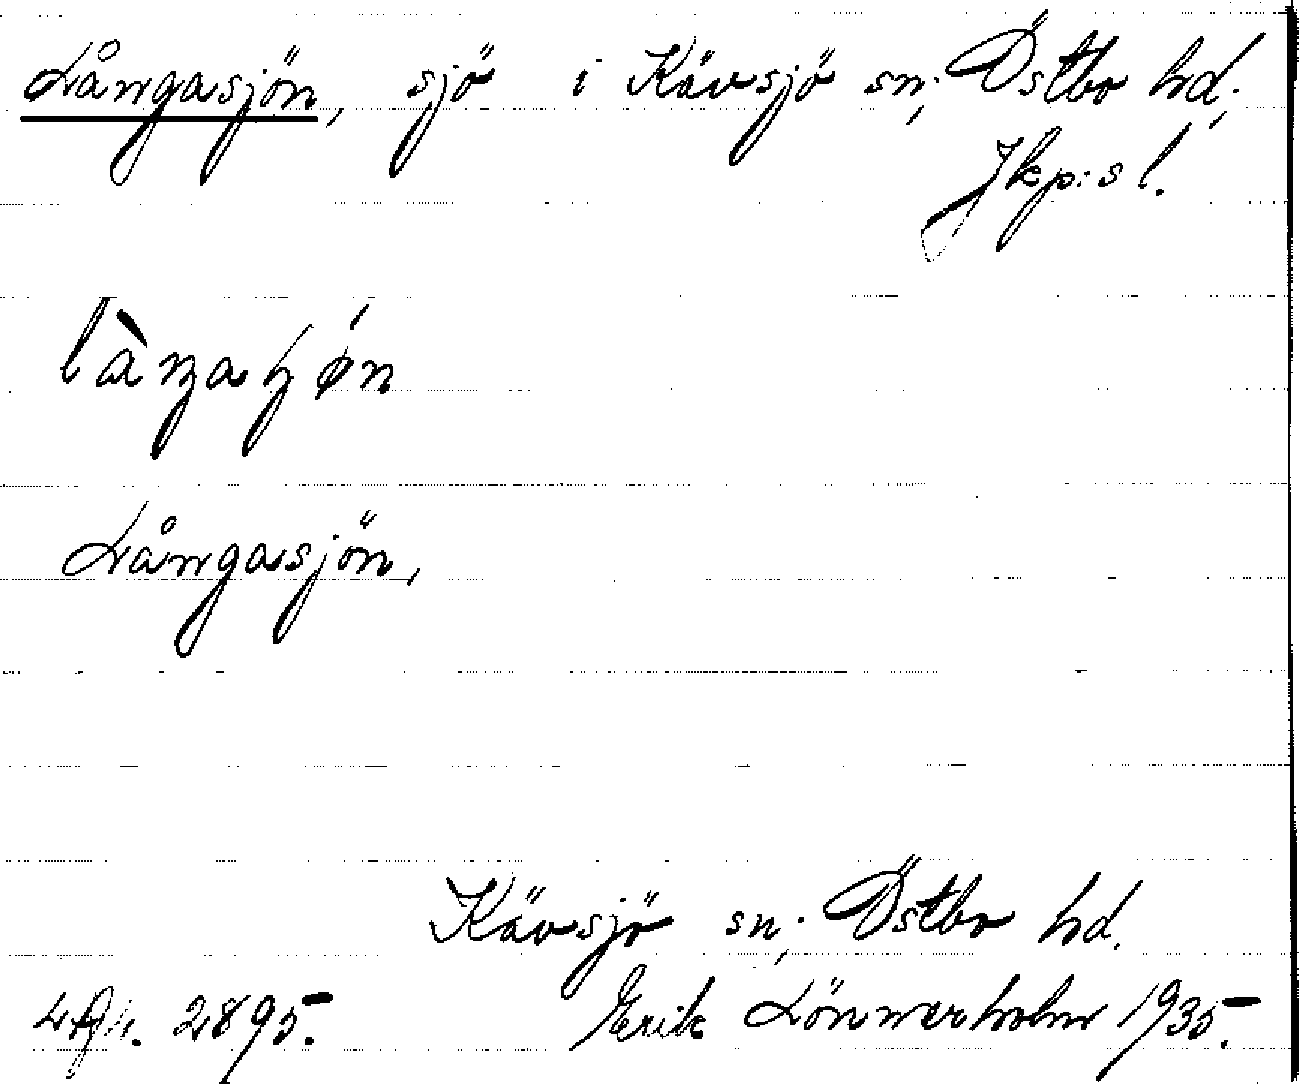 Långasjön, sjö i Kävsjö sn; Östbo hd;
Jkp:s l.
Långasjön,
Kävsjö sn; Östbo hd.
2895. Erik Lönnerholm 1935.